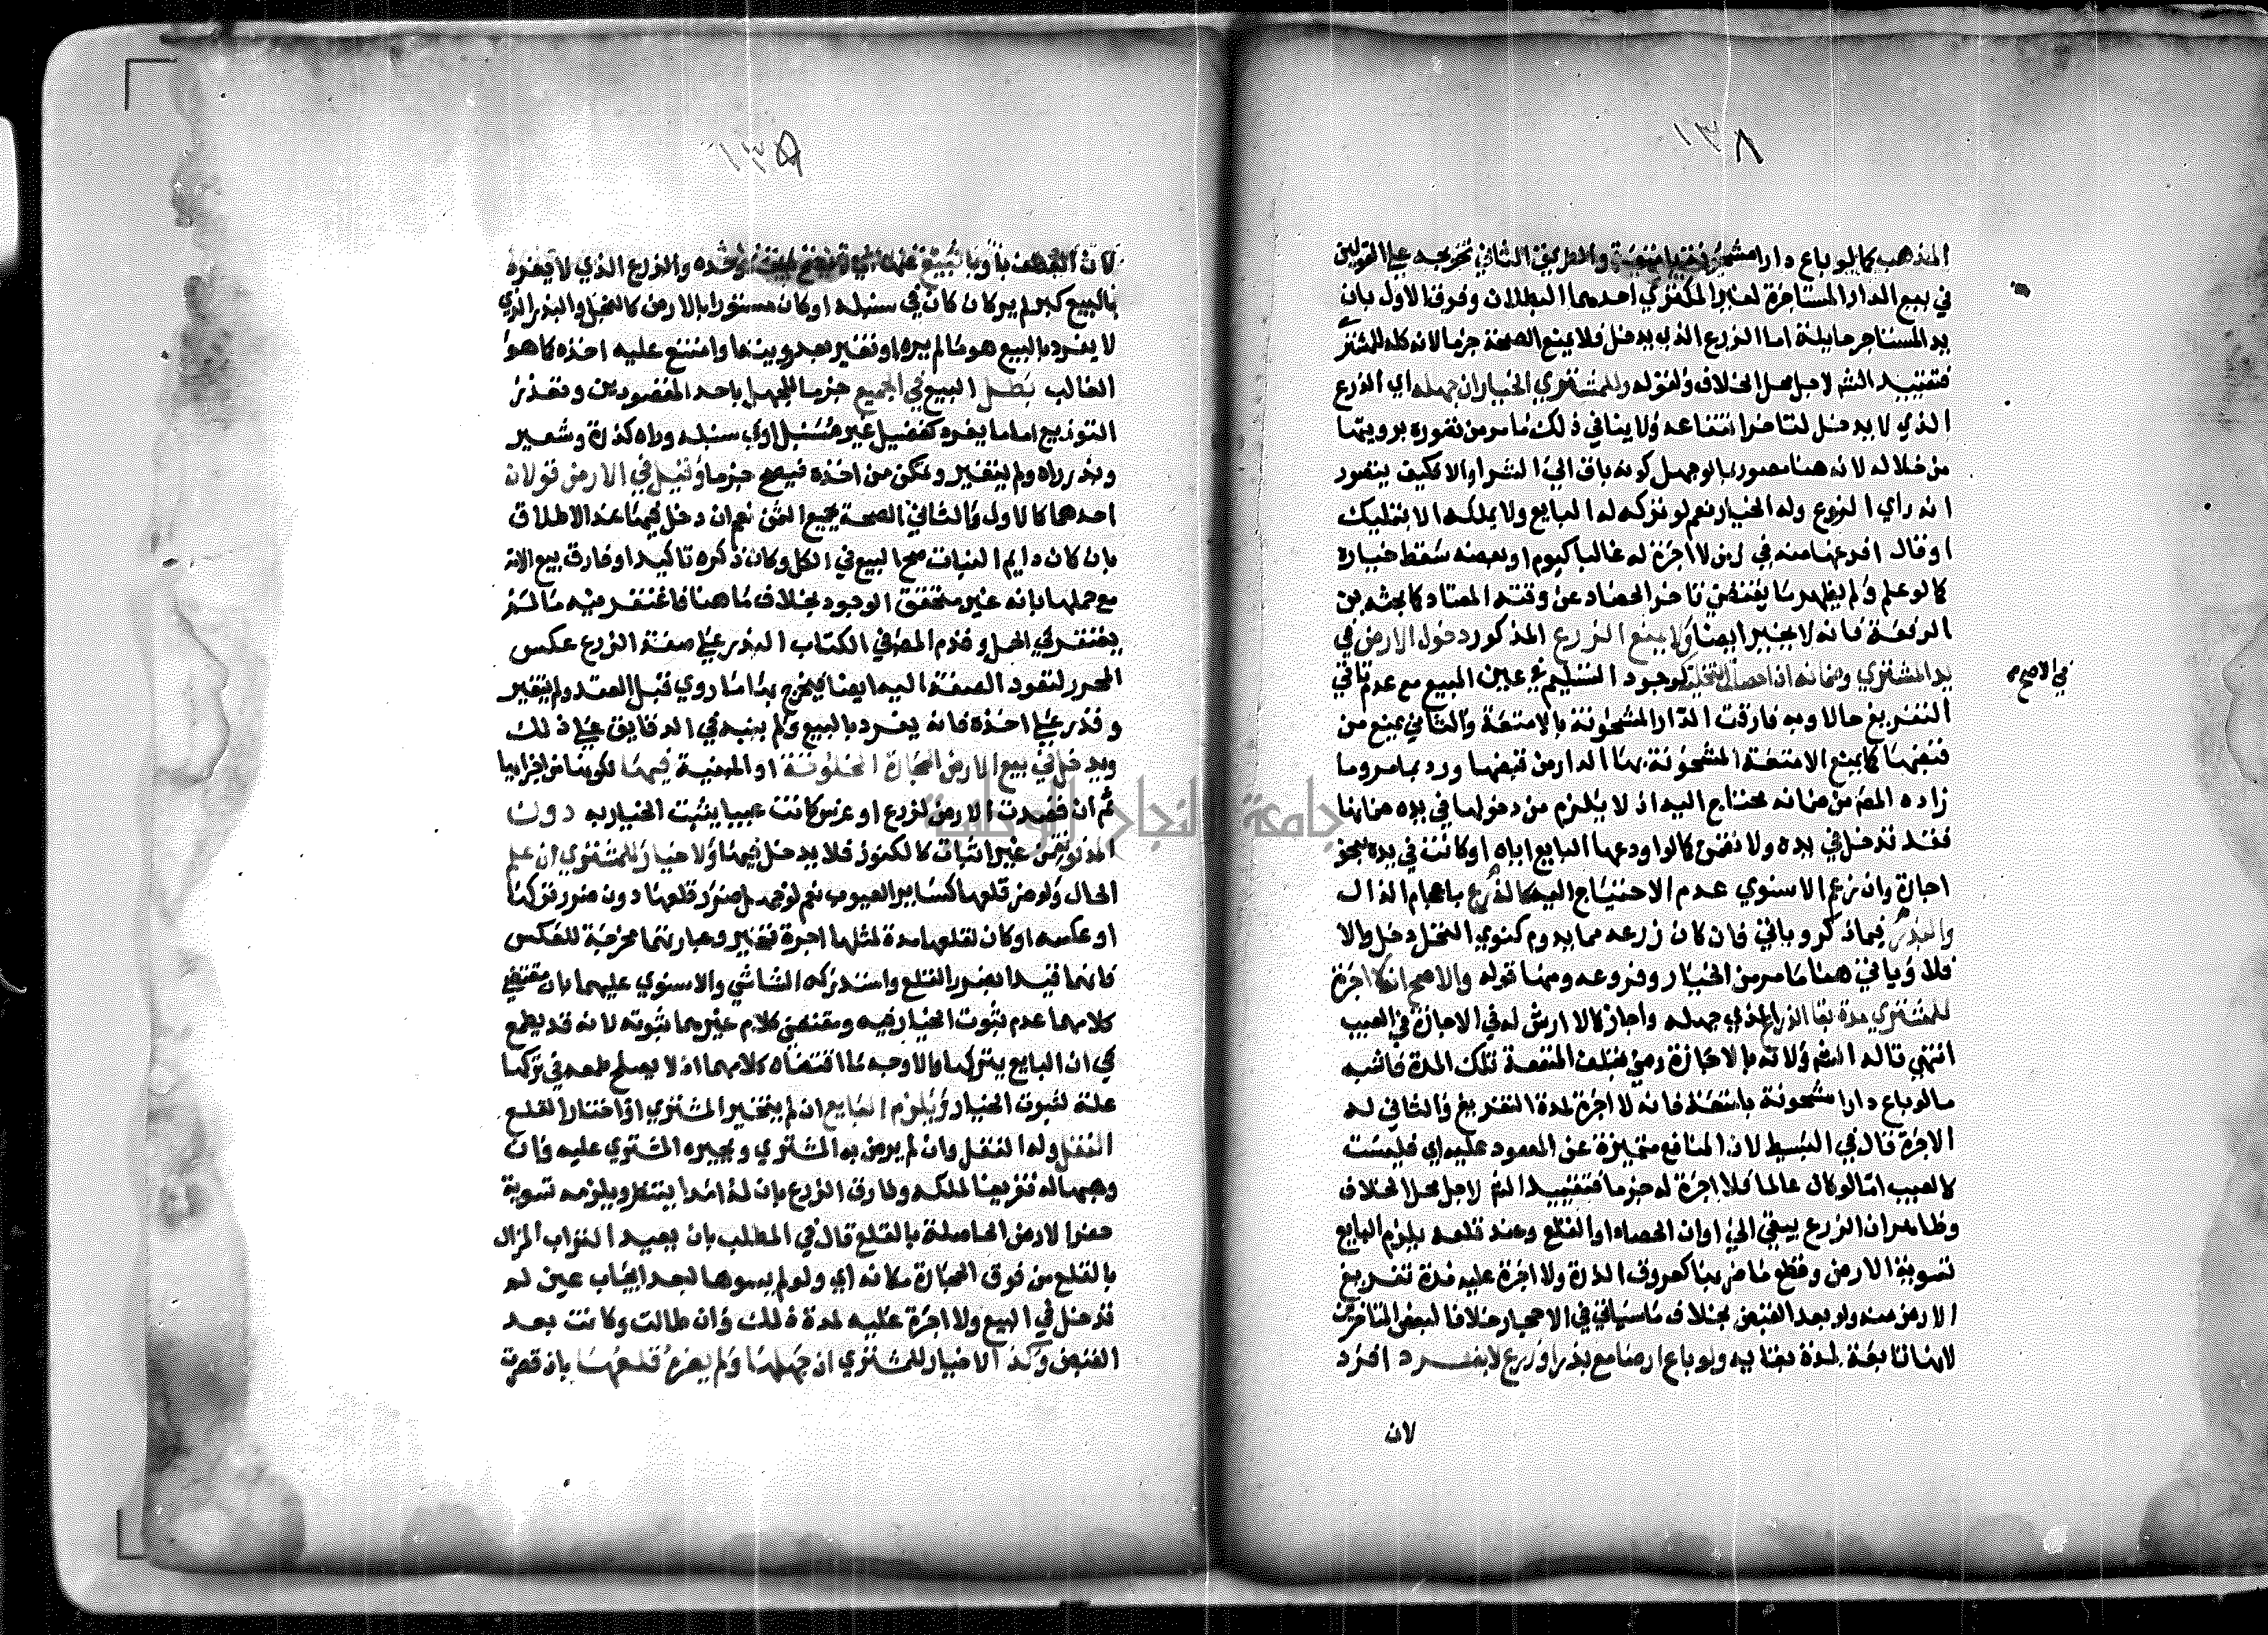 ١٣٨
المذهب كما لو باع دارا مشحونة بامتعة والطريق الثاني تخريجه على القولين
في بيع الدار المستاجرة لغير المكتري احدهما البطلان وفرق الاول بان
يد المستاجر حايلة اما الزرع الذي يدخل فلا يمنع الصحة جزما لانه كله للمشتري
فتقييد الشم لاجل محل الخلاف ولقوله وللمشتري الخيار ان جهله اي الزرع
الذي لا يدخل لتاخر انتفاعه ولا ينافي ذلك ما مر من تصوره برويتها
من خلاله لانه هنا مصور بما لو جهل كونه باق الي الشرا والا فكيف يتصور
انه راي الزرع وله الخيار نعم لو تركه له البايع ولا يملكه الا بتمليك
او قال افرغها منه في زمن لا اجرة له غالبا كيوم او بعضه سقط خياره
كما لو علم ولم يظهر ما يقتضي تاخر الحصاد عن وقته المعتاد كما بحثه بن
الرفعة فانه لا يخير ايضا ولا يمنع الزرع المذكور دخول الارض في
يد المشتري وضمانه اذا حصلت التخلية لوجود التسليم في عين المبيع مع عدم تاتي
في الاصح
التفريغ حالا وبه فارقت الدار المشحونة بالامتعة والثاني يمنع من
قبضها كما يمنع الامتعة المشحونة بها الدار من قبضها ورد بما مر وما
زاده المص من ضمانه محتاج اليه اذ لا يلزم من دخولها في يده ضمانها
فقد تدخل في يده ولا تضمن كما لو اودعها البايع اياه او كانت في يده بنحو
اجارة وان زعم الاسنوي عدم الاحتياج اليه كالذرع باعجام الذال
والبذر فيما ذكر وباقي فان كان زرعه مما يدوم كنوي النخل دخل والا
فلا وياتي هنا ما مر من الخيار وفروعه ومنها قوله والاصح انه لا اجرة
للمشتري مدة بقا الزرع الذي جهله واجاز كما لا ارش له في الاجازة في العيب
انتهي قاله الشم ولانه بالاجازة رضي بتلف المنفعة تلك المدة فاشبه
ما لو باع دارا مشحونة بامتعة فانه لا اجرة لمدة التفريغ والثاني له
الاجرة قال في البسيط لان المنافع متميزة عن المعقود عليه اي فليست
كالعيب اما لو كان عالما فلا اجرة له جزما فتقييد الشم لاجل محل الخلاف
وظاهر ان الزرع يبقي الي اوان الحصاد او القلع وعند قلعه يلزم البايع
تسوية الارض وقطع ما ضر بها كعروق الذرة ولا اجرة عليه مدة تفريغ
الارض منه ولو بعد القبض بخلاف ما سياتي في الاحجار خلافا لبعض المتاخرين
لانها تابعة لمدة بقايه ولو باع ارضا مع بذر او زرع لا يفرد افرد
لان
١٣٩
بالبيع كبر لم ير كان كان في سنبله او كان مستورا بالارض كالفجل والبذر الذي
لا يفرد بالبيع هو ما لم يره او تغير بعد رويتها وامتنع عليه اخذه كما هو
الغالب بطل البيع في الجميع جزما للجهل باحد المقصودين وتعذر
التوزيع اما ما يفرد كقصيل غير مسنبل او في سنبله وراه كذرة وشعير
وبذر راه ولم يتغير وتمكن من اخذه فيصح جزما وقيل في الارض قولان
احدهما كالاول والثاني الصحة بجميع الثمن نعم ان دخل فيها عند الاطلاق
بان كان دايم النبات صح البيع في الكل وكان ذكره تاكيدا وفارق بيع الامة
مع حملها بانه غير متحقق الوجود بخلاف ما هنا فاغتفر فيه ما لم
يغتفر في الحمل وقدم المص في الكتاب البذر علي صفة الزرع عكس
المحرر لتعود الصفة اليه ايضا فيخرج بها ما روي قبل العقد ولم يتغير
وقدر علي اخذه فانه يفرد بالبيع ولم ينبه في الدقايق علي ذلك
ويدخل في بيع الارض الحجارة المخلوقة او المبنية فيها لكونها من اجزايها
ثم ان قصدت الارض لزرع او غرس كانت عيبا يثبت الخيار به دون
المدفونة من غير اثبات كالكنوز فلا يدخل فيها ولا خيار للمشتري ان علم
الحال ولو ضر قلعها كساير العيوب نعم لو جهل ضرر قلعها دون ضرر تركها
او عكسه او كان لقلعها مدة لمثلها اجرة تخير وعبارتهما مخرجة للعكس
فانهما قيدا بضرر القلع واستدركه الشاشي والاسنوي عليهما بان مقتضي
كلامهما عدم ثبوت الخيار فيه ومقتضي كلام غيرهما ثبوته لانه قد يطمع
في ان البايع يتركها والاوجه ما اقتضاه كلامهما اذ لا يصلح طمعه في تركها
علة لثبوت الخيار ويلزم البايع ان لم يتخير المشتري او اختار القلع
النقل وله النقل وان لم يرض به المشتري ويجبره المشتري عليه وان
وهبها له تفريغا لملكه وفارق الزرع بان له امدا ينتظر ويلزمه تسوية
حفر الارض الحاصلة بالقلع قال في المطلب بان يعيد التراب المزال
بالقلع من فوق الحجارة مكانه اي ولو لم يسوها لبعد ايجاب عين لم
تدخل في البيع ولا اجرة عليه لمدة ذلك وان طالت وكانت بعد
القبض وكذا لا خيار للمشتري ان جهلها ولم يضر قلعها بان قصرت